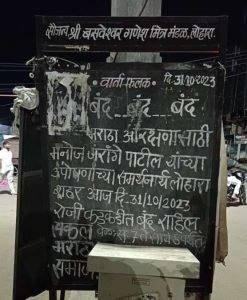 सौजन्य. श्री बसवेश्वर गणेश मित्र मंडळ, लोहारा.
वार्ता फलक. दि. 31/10/2023
बंद...बंद...बंद
मराठा आरक्षणासाठी
मनोज जरांगे पाटील यांच्या
उपोषणाच्या समर्थनार्थ लोहारा
शहर आज दि. 31/10/2023
रोजी कडकडीत बंद राहिल
सकल
मराठा
समाज